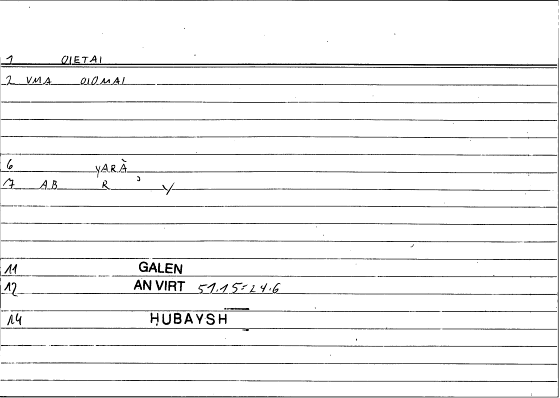 1 OIETAI
2 VMA OIOMAI
6 yARÀ
17 AB R ʾ y
11 GALEN
12 AN VIRT 51.15=24.6
14 ḤUBAYSH